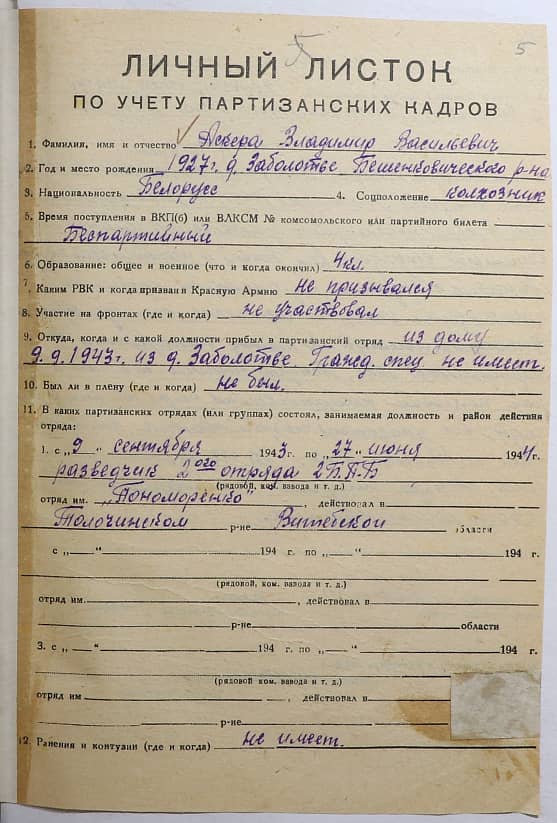 5
ЛИЧНЫЙ ЛИСТОК
ПО УЧЕТУ ПАРТИЗАНСКИХ КАДРОВ
1. Фамилия, имя и отчество Аскера Владимир Васильевич
2. Год и место рождения 1927 г. д. Заболотье Бешенковического р-на
3. Национальность Белорусс 4. Соцположение колхозник
5. Время поступления в ВКП(б) или ВЛКСМ № комсомольского или партийного билета
Беспартийный
6. Образование: общее и военное (что и когда окончил) 4 кл.
7. Каким РВК и когда призван в Красную Армию не призывался
8. Участие на фронтах (где и когда) не участвовал
9. Откуда, когда и с какой должности прибыл в партизанский отряд из дому
9.9.1943 г. из д. Заболотье. Гражд. спец. не имеет.
10. Был ли в плену (где и когда) не был.
11. В каких партизанских отрядах (или группах) состоял, занимаемая должность и район действия
отряда:
1. с „9" сентября 1943 г. по „27" июня 1944 г.
разведчик 2ого отряда 2 П.П.Б
(рядовой, ком. взвода и т. д.)
отряд им. „Пономоренко", действовал в
Толочинском р-не Витебской области
с „ — " 194 г. по „ — " 194 г.
(рядовой, ком. взвода и т. д.)
отряд им. , действовал в
р-не области
3. с „ — " 194 г. по „ — " 194 г.
(рядовой, ком. взвода и т. д.)
отряд им , действовал в
р-не
12. Ранения и контузии (где и когда) не имеет.